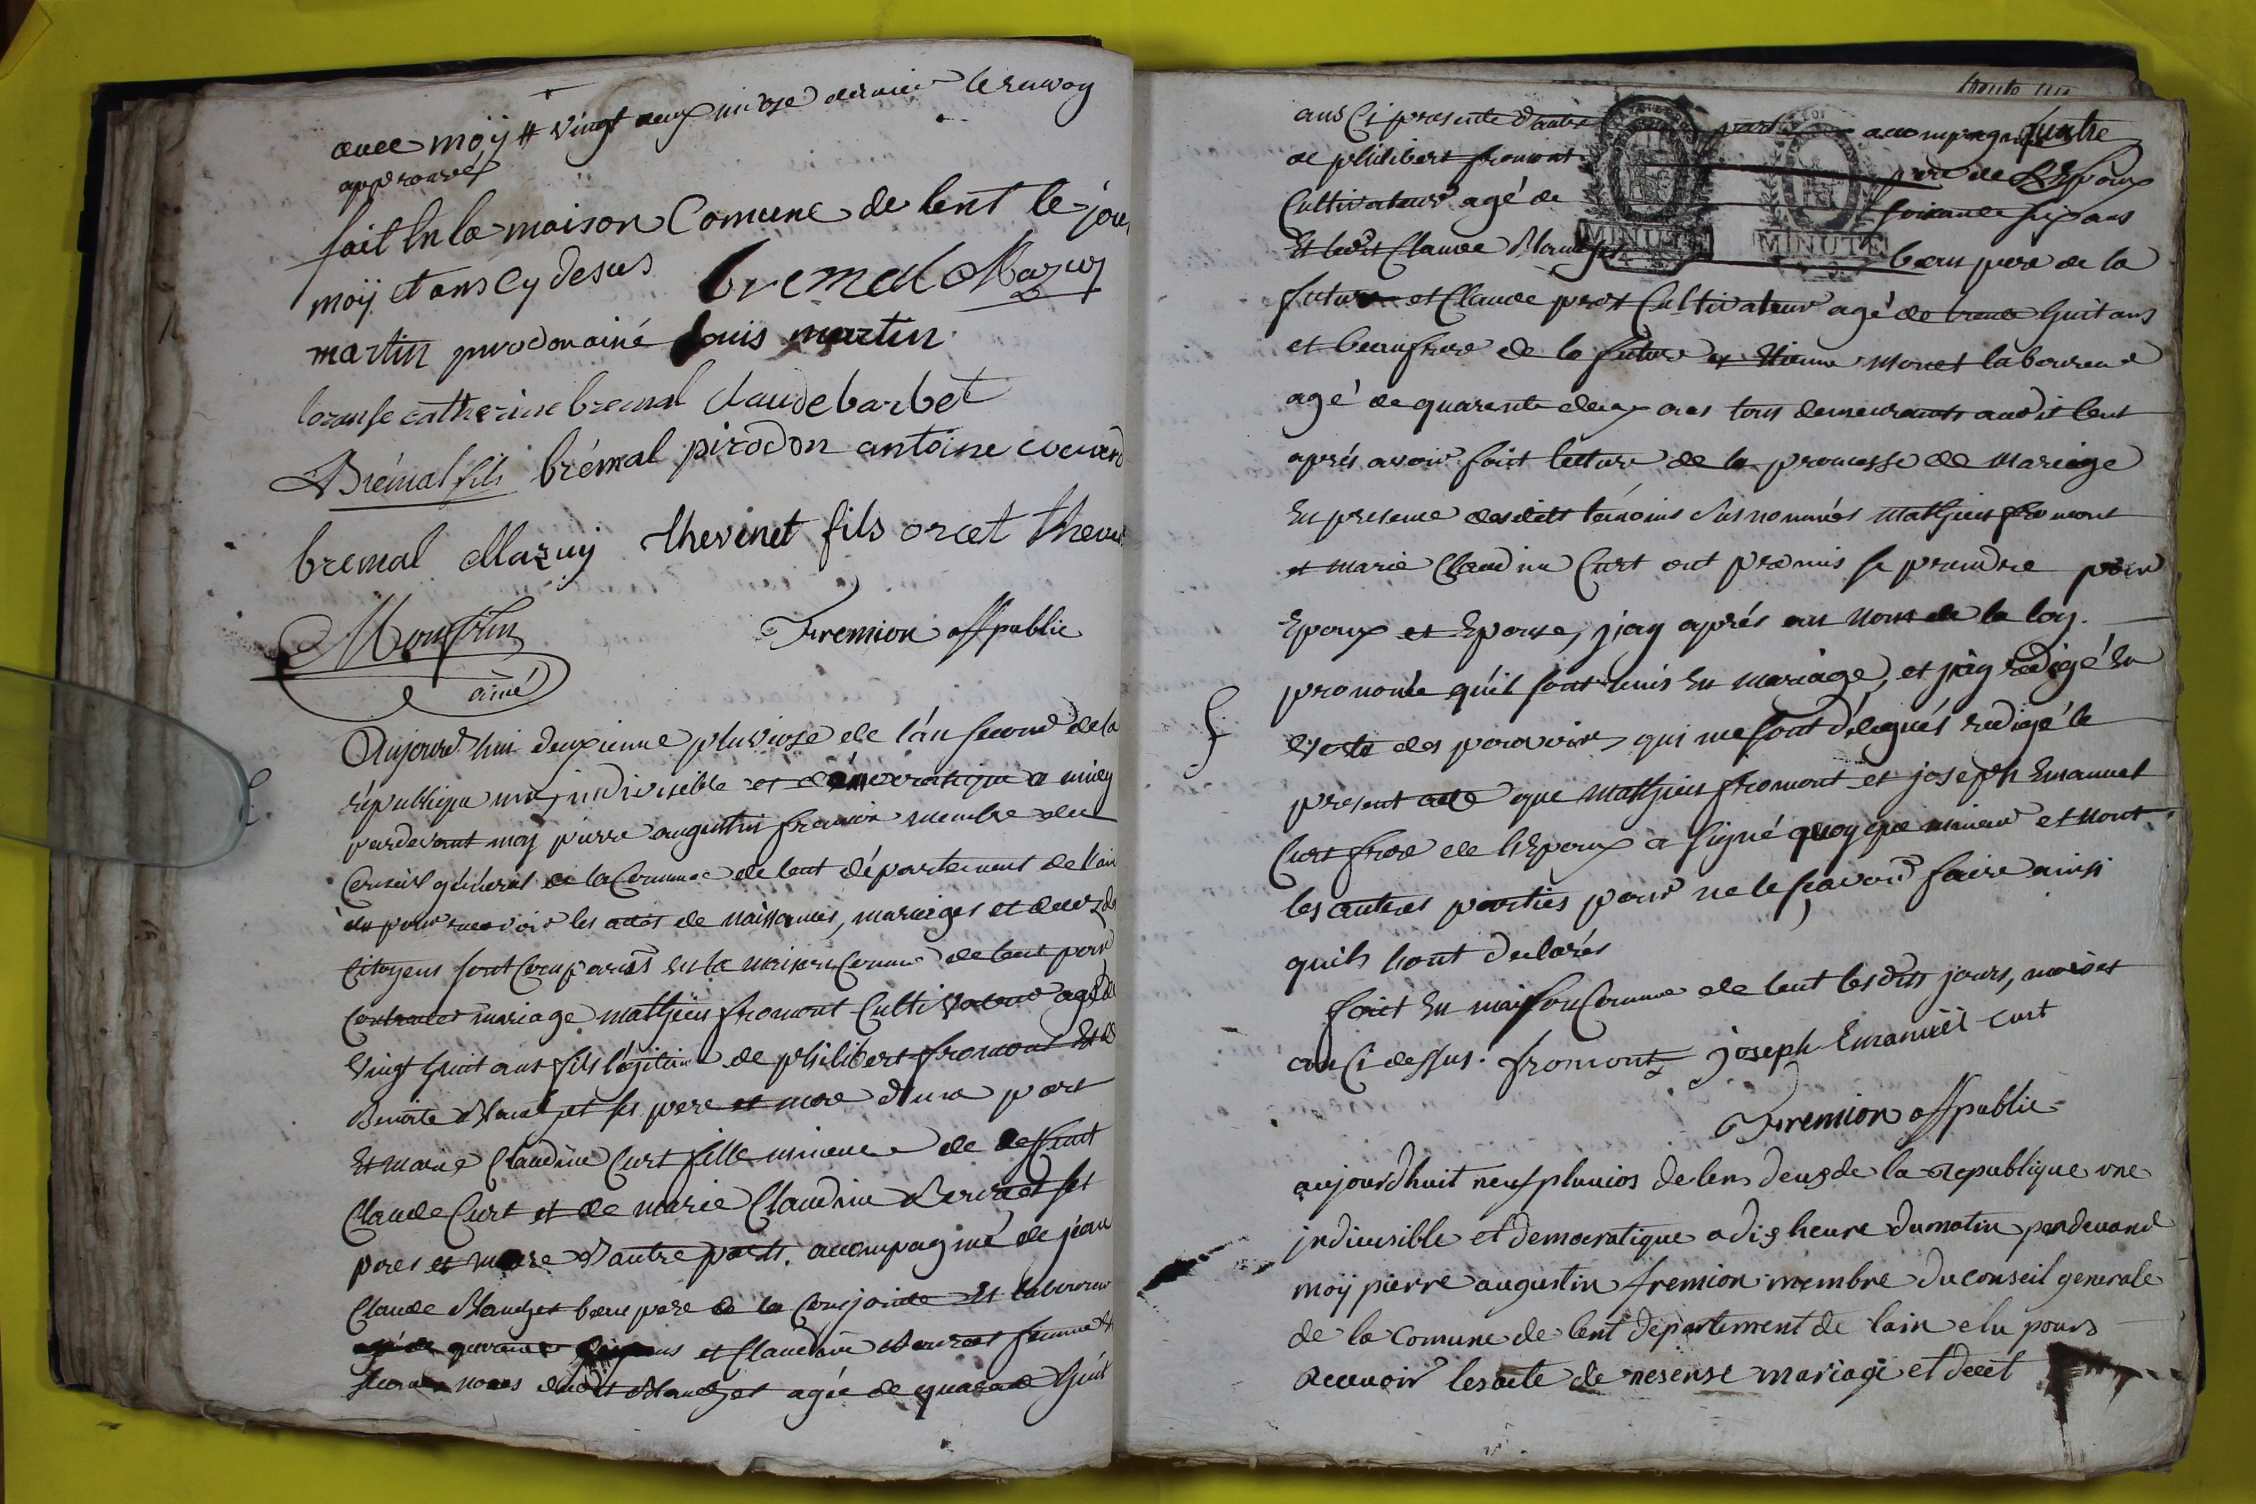 avec moÿ # vingt neuf nivose dernier le renvoy
approuvé
fait en la maison Comune de lent le jour
moÿ et ans cy desus bremal Mazuy
martin pirodon ainé louis martin
catherine bremal claude barbet
Brémal fils brémal pirodon antoine couvert
bremal Mazuy thevenet fils orcet theve
Monfrin Fremion off public
ainé
Aujourd'hui deuxieme pluviose de l'an second de la
république une, indivisible et démocratique a midy
pardevant moy pierre augustin fremion membre du
Conseil général de la Commune de lent département de l'ain
élu pour recevoir les actes de naissances, mariages et deces des
Citoyens sont Comparus en la maison Comune de lent pour
Contracter mariage mathieu fromont Cultivateur agé de
vingt huit ans fils légitime de philibert fromont et de
Benoite Blanchet ses pere et mere d'une part
Et marie Claudine Curt fille mineure de deffunt
Claude Curt et de marie Claudine Bervret ses
peres et mere d'autre parts. accompagné de jéan
Claude Blanchet beau pere de la Conjointe Et laboureur
agé de quarante ans et Claudine femme
noces dudit Blanchet agée de quarante huit
ans Ci presente d'autre part accompagné
de philibert fromont pere de L'Epoux
Cultivateur agé de soixante six ans
Et ledit Claude Blanchet beau pere de la
MINUTE MINUTE
future et Claude prost Cultivateur agé de trente huit ans
et beaufrere de la future et Etienne Monet laboureur
agé de quarente deux ans tous demeurants audit lent
aprés avoir fait lecture de la promesse de mariage
En presence desdits témoins susnommés mathieu fromont
et marie Claudine Curt ont promis se prendre pour
Epoux et Epouse, j'ay aprés au nom de la loy.
prononcé qu'il sont unis en mariage, et j'ay redigé En
vertu des pouvoirs qui me sont délegués redigé le
present acte que mathieu fromont et joseph Emanuel
Curt frere de l'Epoux a signé quoy que mineur et nont
les autres parties pour ne le sçavoir faire ainsi
quils l'ont declarés
fait En maison Comune de lent lesdits jours, mois et
an Ci dessus. fromont joseph Emanuel curt
Fremion off public
aujourdhuit neuf pluvios de len deus de la Republique une
jndivisible et democratique a dis heure du matin pardevand
moÿ pierre augustin fremion membre du conseil generale
de la comune de lent departement de lain elu pours
Recevoir les acte de nesense mariage et deces